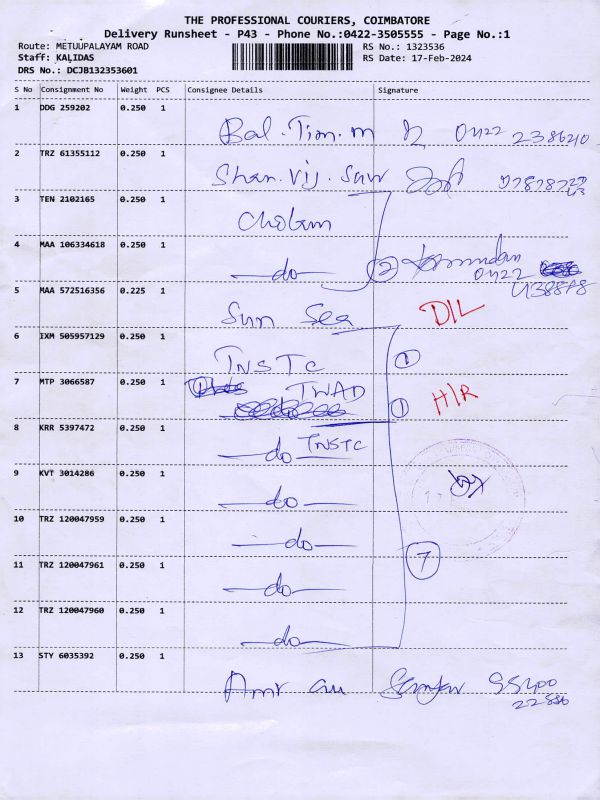 THE PROFESSIONAL COURIERS, COIMBATORE
Delivery Runsheet - P43 - Phone No.:0422-3505555 - Page No.:1
Route: METUUPALAYAM ROAD
RS No.: 1323536
Staff: KALIDAS
RS Date: 17-Feb-2024
DRS No.: DCJB132353601
S No Consignment No Weight PCS Consignee Details Signature
1 DDG 259202 0.250 1
Bal. Tim. m 0422 238640
2 TRZ 61355112 0.250 1
Shan. Vij. Saw
3 TEN 2102165 0.250 1
Cholam
4 MAA 106334618 0.250 1
do 2
0422
438898
5 MAA 572516356 0.225 1
Sun Sea D/L
6 IXM 505957129 0.250 1
TNSTC 1
7 MTP 3066587 0.250 1
TWAD 1 H/R
8 KRR 5397472 0.250 1
do TNSTC
9 KVT 3014286 0.250 1
do
10 TRZ 120047959 0.250 1
do
11 TRZ 120047961 0.250 1
do 7
12 TRZ 120047960 0.250 1
do
13 STY 6035392 0.250 1
Amr 95400
22550